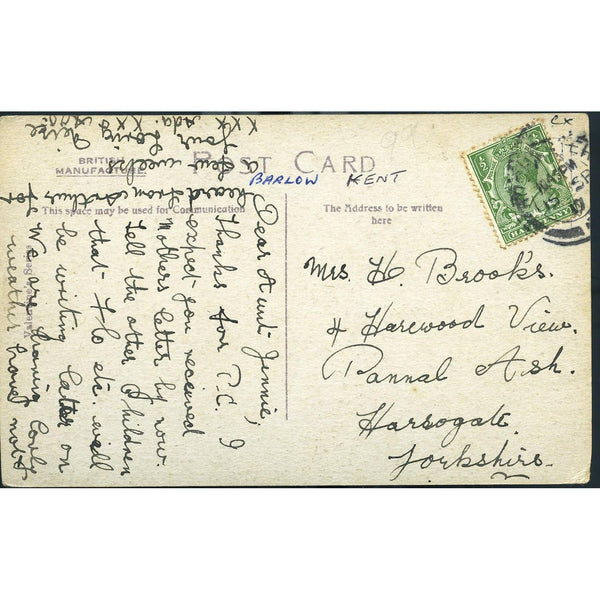 POST CARD
BRITISH
MANUFACTURE.
BARLOW KENT
This space may be used for Communication
The Address to be written
here
Dear Aunt Jennie,
Thanks for P.C. I
expect you received
mothers letter by now
tell the other children
that Flo etc. will
be writing later on
We are having lovely
weather have not
heard from Arthur for
a few weeks.
Your loving Neice
Ada. xxx
xxx
Mrs. H. Brooks.
4 Harewood View.
Pannal Ash.
Harrogate.
Yorkshire.
½